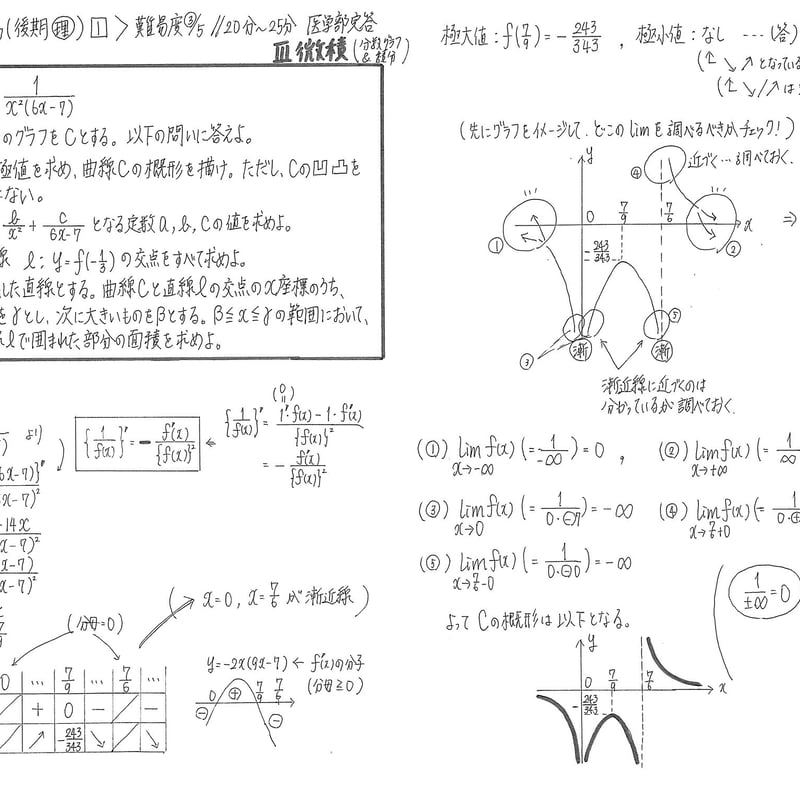 (後期理) 1 > 難易度③/5 // 20分~25分 医学部完答
Ⅲ微積(分数グラフ & 積分)
1/(x²(6x-7))
のグラフをCとする。以下の問いに答えよ。
極値を求め、曲線Cの概形を描け。ただし、Cの凹凸を
ない。
b/x² + c/(6x-7) となる定数a, b, cの値を求めよ。
線 l: y=f(-1/3) の交点をすべて求めよ。
した直線とする。曲線Cと直線lの交点のx座標のうち、
をγとし、次に大きいものをβとする。β≦x≦γの範囲において、
lで囲まれた部分の面積を求めよ。
より
{1/f(x)}' = - f'(x)/{f(x)}²
← {1/f(x)}' = (1'・f(x) - 1・f'(x))/{f(x)}²
(0)
= - f'(x)/{f(x)}²
6x-7)}'
x-7)²
-14x
x-7)²
x-7)
x-7)²
7/9
(→ x=0, x=7/6 が漸近線)
(分母=0)
0 … 7/9 … 7/6 …
+ 0 - -
↗ -243/343 ↘ ↘
y=-2x(9x-7) ← f'(x)の分子
(分母≧0)
0 ⊕ 7/9 7/6
⊖ ⊖
極大値: f(7/9) = -243/343 , 極小値: なし … (答)
(↑ ↘ ↗ となっている
(↑ ↘/↗ は
(先にグラフをイメージして、どこのlimを調べるべきかチェック!)
④ 近づく…調べておく.
y
0 7/9 7/6 x
① ②
-243/343
③ 漸 漸 ⑤
⇒
漸近線に近づくのは
分かっているが調べておく.
(①) lim f(x) (= 1/-∞) = 0 , (②) lim f(x) (= 1/∞
x→-∞ x→+∞
(③) lim f(x) (= 1/(0・⊖7)) = -∞ (④) lim f(x) (= 1/(0・⊕
x→0 x→7/6+0
(⑤) lim f(x) (= 1/(0・⊖0)) = -∞
x→7/6-0
1/±∞ = 0
よって Cの概形は以下となる。
y
0 7/9 7/6 x
-243/343